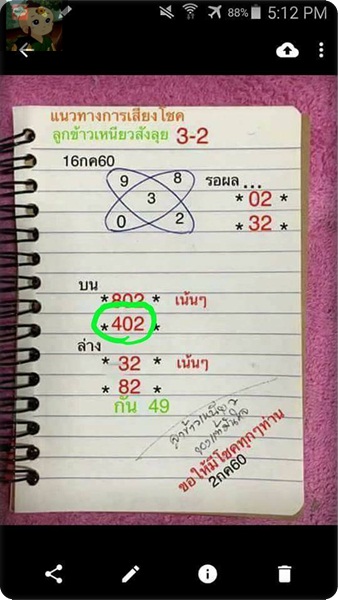 88% 5:12 PM
แนวทางการเสียงโชค
ลูกข้าวเหนียวสังลุย 3-2
16กค60
9 8
3
0 2
รอผล...
* 02 *
* 32 *
บน
*802* เน้นๆ
*402*
ล่าง
* 32 * เน้นๆ
* 82 *
กัน 49
ขอให้มีโชคทุกๆท่าน
2กค60